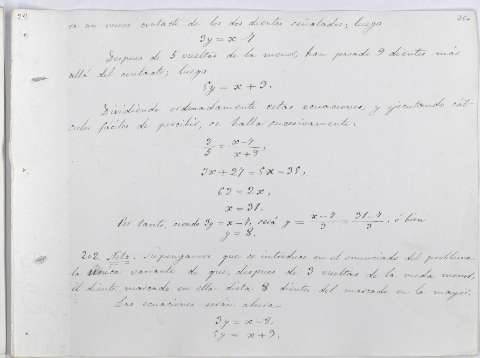 se un nuevo contacto de los dos dientes señalados; luego
3y = x - 7
Despues de 5 vueltas de la menor, han pasado 9 dientes más
allá del contacto; luego
5y = x + 9.
Dividiendo ordenadamente estas ecuaciones y ejecutando cál-
culos faciles de percibir, se halla sucesivamente.
3/5 = x-7/x+9,
3x + 27 = 5x - 35,
62 = 2x,
x = 31.
Por tanto, siendo 3y = x - 7, será y = x-7/3 = 31-7/3, ó bien
y = 8.
202 Nota. Supongamos que se introduce en el enunciado del problema
la única variante de que, despues de 3 vueltas de la rueda menor,
el diente marcado en ella dista 8 dientes del marcado en la mayor.
Las ecuaciones serán ahora
3y = x - 8.
5y = x + 9.